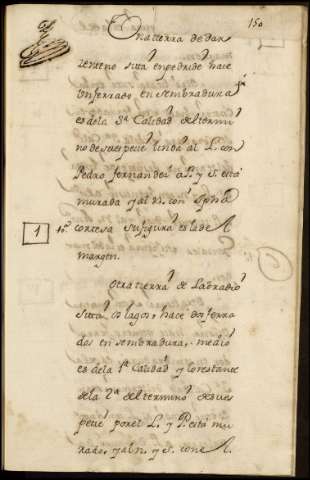 150
Otra tierra de dar
zenteno sita en pedride hace
un ferrado en sembradura
es dela 3ª Calidad del termi
no desuespecie linda al L. con
Pedro fernandez a P. y S. está
murada y al N. con
1 cortesa su figura es la de l
margen.
otra tierra de Labradio
sita os lagos, hace dos ferra
dos en sembradura, medio
es de la 1ª Calidad y lo restante
dela 2ª del termino desues
pecie por el L. y P. está mu
rado, y al N. y S. con el